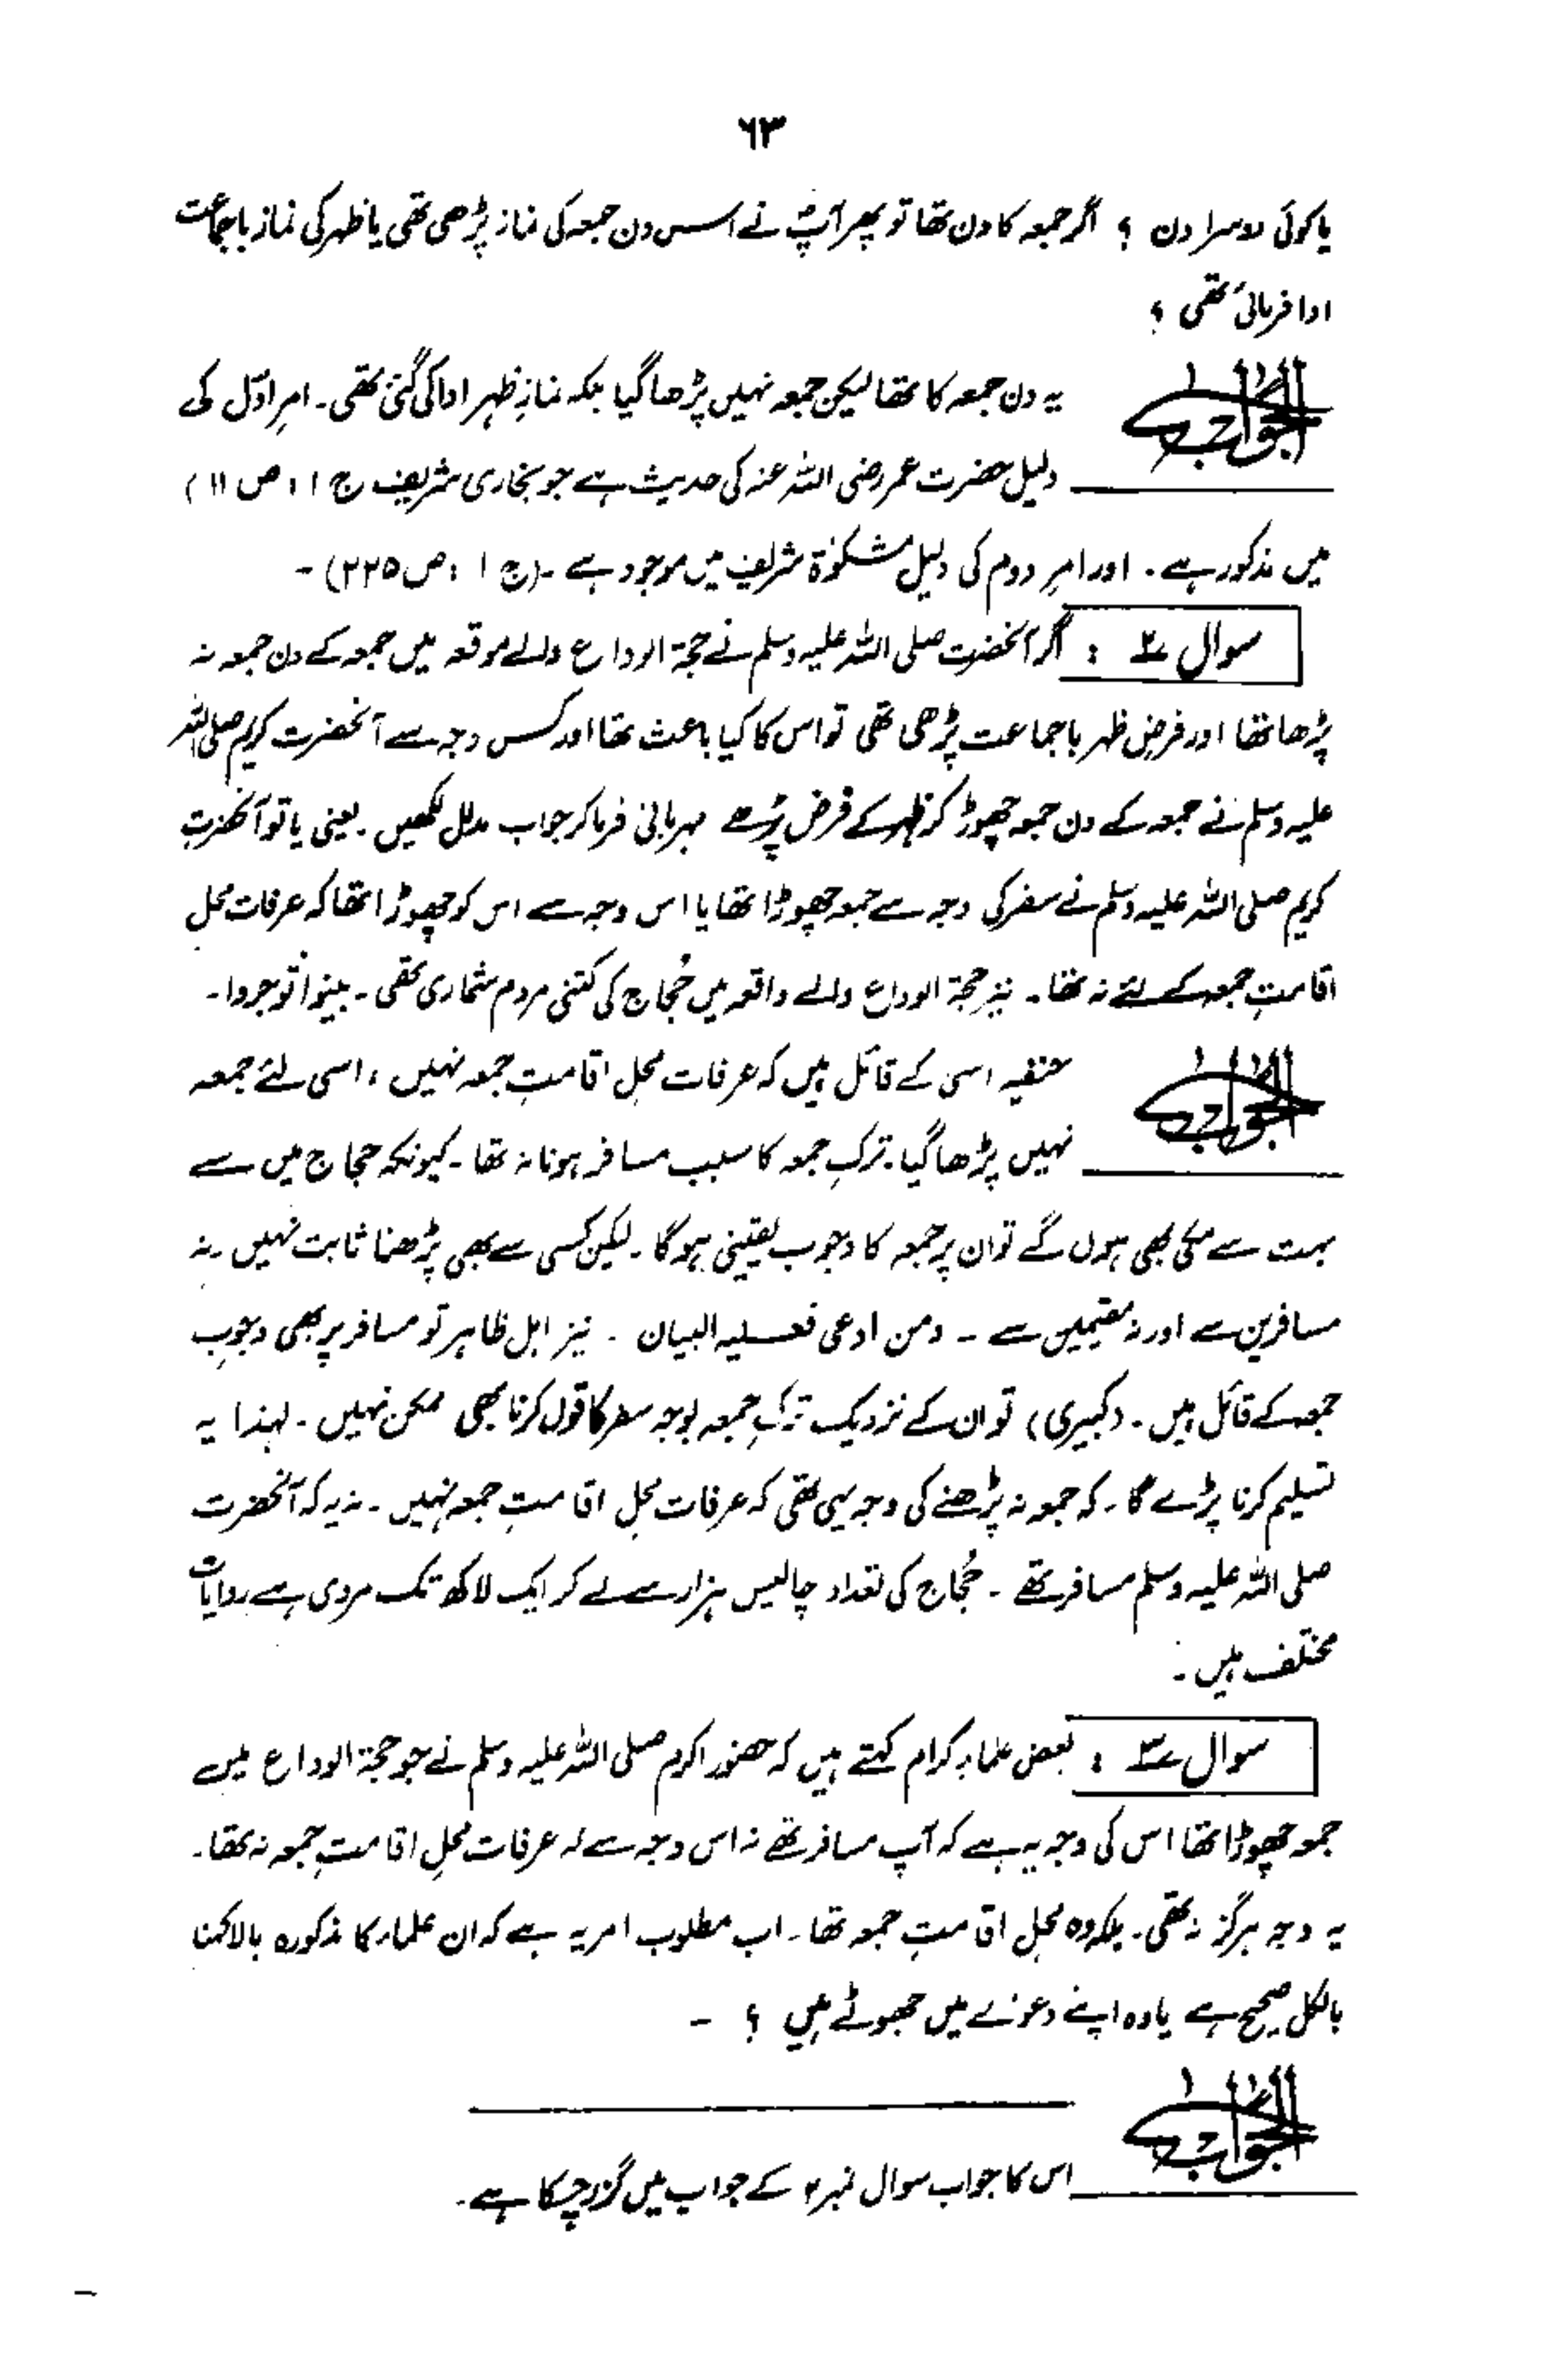 ٦٣
یا کوئی دوسرا دن ؟ اگر جمعہ کا دن تھا تو پھر آپؐ نے اس دن جمعہ کی نماز پڑھی تھی یا ظہر کی نماز باجماعت
ادا فرمائی تھی ؟
الجواب
یہ دن جمعہ کا تھا لیکن جمعہ نہیں پڑھا گیا بلکہ نمازِ ظہر ادا کی گئی تھی۔ امرِ اوّل کی
دلیل حضرت عمر رضی اللہ عنہ کی حدیث ہے جو بخاری شریف ج ۱ : ص ۱۱)
میں مذکور ہے ۔ اور امرِ دوم کی دلیل مشکوٰۃ شریف میں موجود ہے ۔ (ج ۱ : ص ۲۲۵) ۔
سوال ۲ : اگر آنحضرت صلی اللہ علیہ وسلم نے حجۃ الوداع والے موقعہ میں جمعہ کے دن جمعہ نہ
پڑھا تھا اور فرضِ ظہر باجماعت پڑھی تھی تو اس کا کیا باعث تھا اور کس وجہ سے آنحضرت کریم صلی اللہ
علیہ وسلم نے جمعہ کے دن جمعہ چھوڑ کر ظہر کے فرض پڑھے مہربانی فرما کر جواب مدلل لکھیں ۔ یعنی یا تو آنحضرتِ
کریم صلی اللہ علیہ وسلم نے سفر کی وجہ سے جمعہ چھوڑا تھا یا اس وجہ سے اس کو چھوڑا تھا کہ عرفات محلِ
اقامتِ جمعہ کے لئے نہ تھا ۔ نیز حجۃ الوداع والے واقعہ میں حُجاج کی کتنی مردم شماری تھی ۔ بینوا توجروا۔
الجواب
حنفیہ اسی کے قائل ہیں کہ عرفات محلِ اقامتِ جمعہ نہیں ، اسی لئے جمعہ
نہیں پڑھا گیا ۔ ترکِ جمعہ کا سبب مسافر ہونا نہ تھا ۔ کیونکہ حجاج میں سے
بہت سے مکی بھی ہوں گے تو ان پر جمعہ کا وجوب یقینی ہوگا ۔ لیکن کسی سے بھی پڑھنا ثابت نہیں ۔ نہ
مسافرین سے اور نہ مقیمین سے ۔ ومن ادعی فعلیہ البیان ۔ نیز اہل ظاہر تو مسافر پر بھی وجوبِ
جمعہ کے قائل ہیں ۔ (کبیری) تو ان کے نزدیک ترکِ جمعہ بوجہ سفر کا قول کرنا بھی ممکن نہیں ۔ لہٰذا یہ
تسلیم کرنا پڑے گا ۔ کہ جمعہ نہ پڑھنے کی وجہ یہی تھی کہ عرفات محلِ اقامتِ جمعہ نہیں ۔ نہ یہ کہ آنحضرت
صلی اللہ علیہ وسلم مسافر تھے ۔ حُجاج کی تعداد چالیس ہزار سے لے کر ایک لاکھ تک مروی ہے روایات
مختلف ہیں ۔
سوال ۳ : بعض علماء کرام کہتے ہیں کہ حضور اکرم صلی اللہ علیہ وسلم نے جو حجۃ الوداع میں
جمعہ چھوڑا تھا اس کی وجہ یہ ہے کہ آپ مسافر تھے نہ اس وجہ سے کہ عرفات محلِ اقامتِ جمعہ نہ تھا ۔
یہ وجہ ہرگز نہ تھی ۔ بلکہ وہ محلِ اقامتِ جمعہ تھا ۔ اب مطلوب امر یہ ہے کہ ان علماء کا مذکورہ بالا کہنا
بالکل صحیح ہے یا وہ اپنے دعوٰے میں جھوٹے ہیں ؟ ۔
الجواب
اس کا جواب سوال نمبر ۲ کے جواب میں گزر چکا ہے ۔